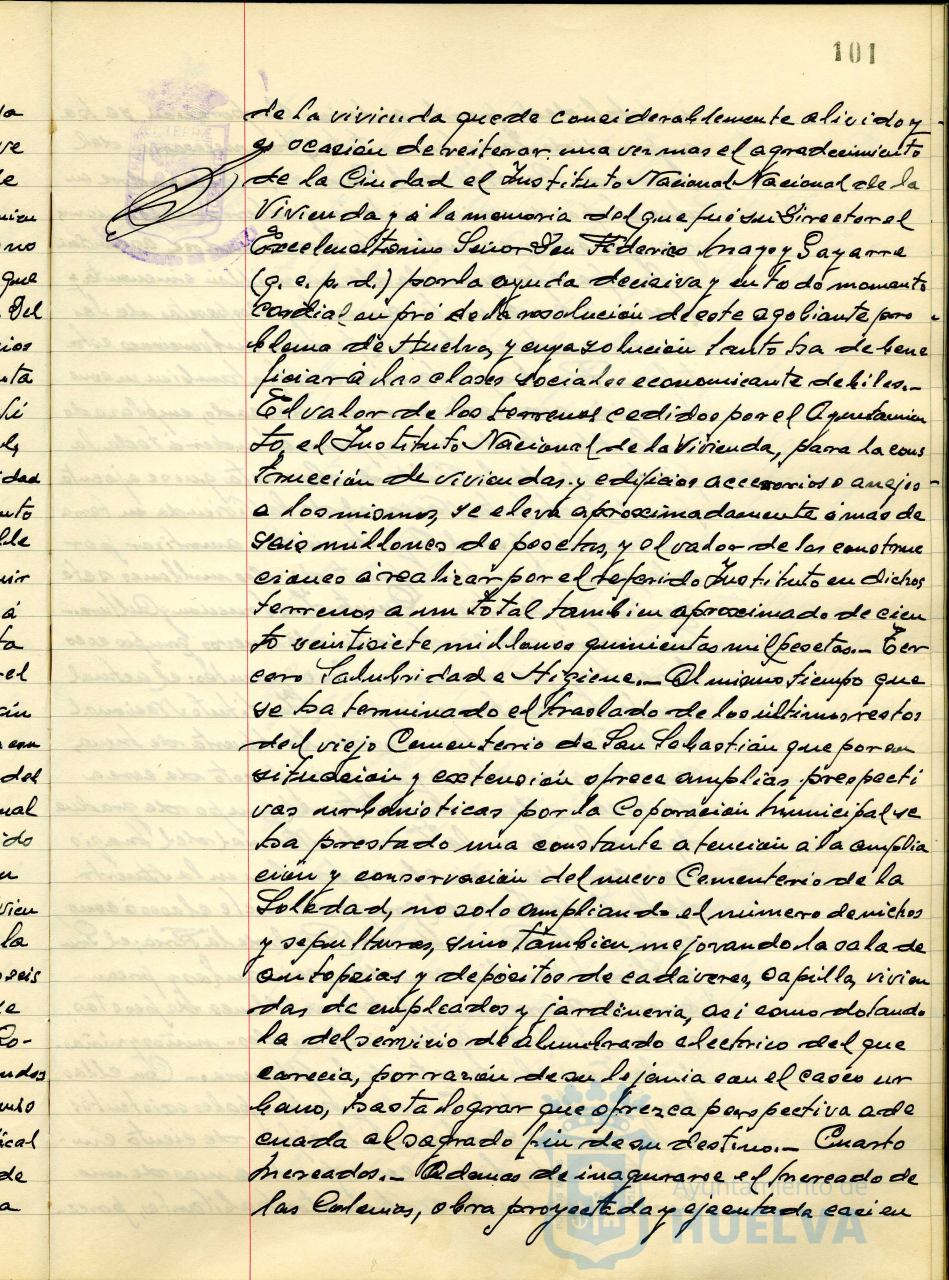 101
de la vivienda quede considerablemente alivido y
es ocasión de reiterar una vez mas el agradecimiento
de la Ciudad el Instituto Nacional Nacional de la
Vivienda y a la memoria del que fué su Director el
Excelentisimo Señor Don Federico Mayo y Gayarre
(q. e. p. d.) por la ayuda decisiva y en todo momento
cordial en pró de la resolución de este agobiante pro
blema de Huelva, y cuya solución tanto ha de bene
ficiar á las clases sociales economicante debiles.-
El valor de los terrenos cedidos por el Ayuntamien
to, el Instituto Nacional de la Vivienda, para la cons
trucción de viviendas y edificios accesorios o anejos
a los mismos, se eleva aproximadamente á mas de
seis millones de pesetas, y el valor de las construc
ciones á realizar por el referido Instituto en dichos
terrenos a un total tambien aproximado de cien
to veintisiete millones quinientas mil pesetas.- Ter
cero Salubridad e Higiene.- Al mismo tiempo que
se ha terminado el traslado de los ultimos restos
del viejo Cementerio de San Sebastián que por su
situación y extensión ofrece amplias prespecti
vas urbanisticas por la Coporación Municipal se
ha prestado una constante atención a la amplia
ción y conservación del nuevo Cementerio de la
Soledad, no solo ampliando el número de nichos
y sepulturas, sino tambien mejorando la sala de
autopsias y depósitos de cadáveres, capilla, vivien
das de empleados y jardineria, asi como dotando
la del servicio de alumbrado electrico del que
carecia, por razón de su lejania con el casco ur
bano, hasta lograr que ofrezca perspectiva ade
cuada al sagrado fin de su destino.- Cuarto
Mercados.- Ademas de inagurarse el Mercado de
las Colonias, obra proyectada y ejecutada casi en
Ayuntamiento de
HUELVA